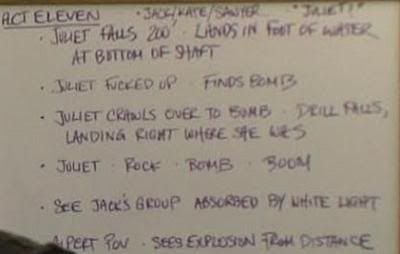 ACT ELEVEN · JACK/KATE/SAWYER... "JULIET!"
· JULIET FALLS 200' · LANDS IN FOOT OF WATER
AT BOTTOM OF SHAFT
· JULIET FUCKED UP · FINDS BOMB
· JULIET CRAWLS OVER TO BOMB · DRILL FALLS,
LANDING RIGHT WHERE SHE WAS
· JULIET · ROCK · BOMB · BOOM
· SEE JACK'S GROUP ABSORBED BY WHITE LIGHT
· ALPERT POV · SEES EXPLOSION FROM DISTANCE